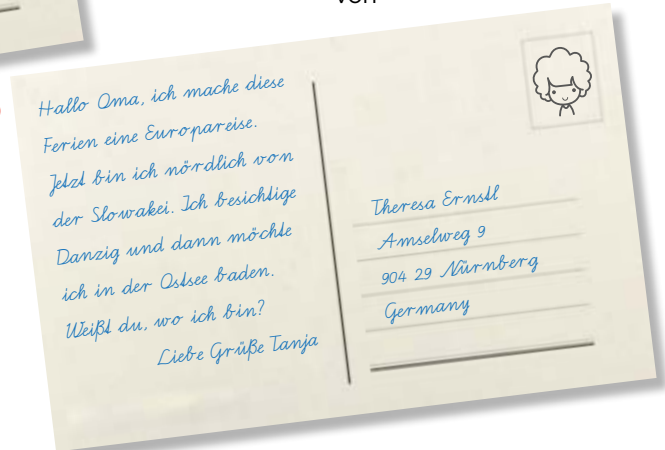 von
Hallo Oma, ich mache diese
Ferien eine Europareise.
Jetzt bin ich nördlich von
der Slowakei. Ich besichtige
Danzig und dann möchte
ich in der Ostsee baden.
Weißt du, wo ich bin?
Liebe Grüße Tanja
Theresa Ernstl
Amselweg 9
904 29 Nürnberg
Germany